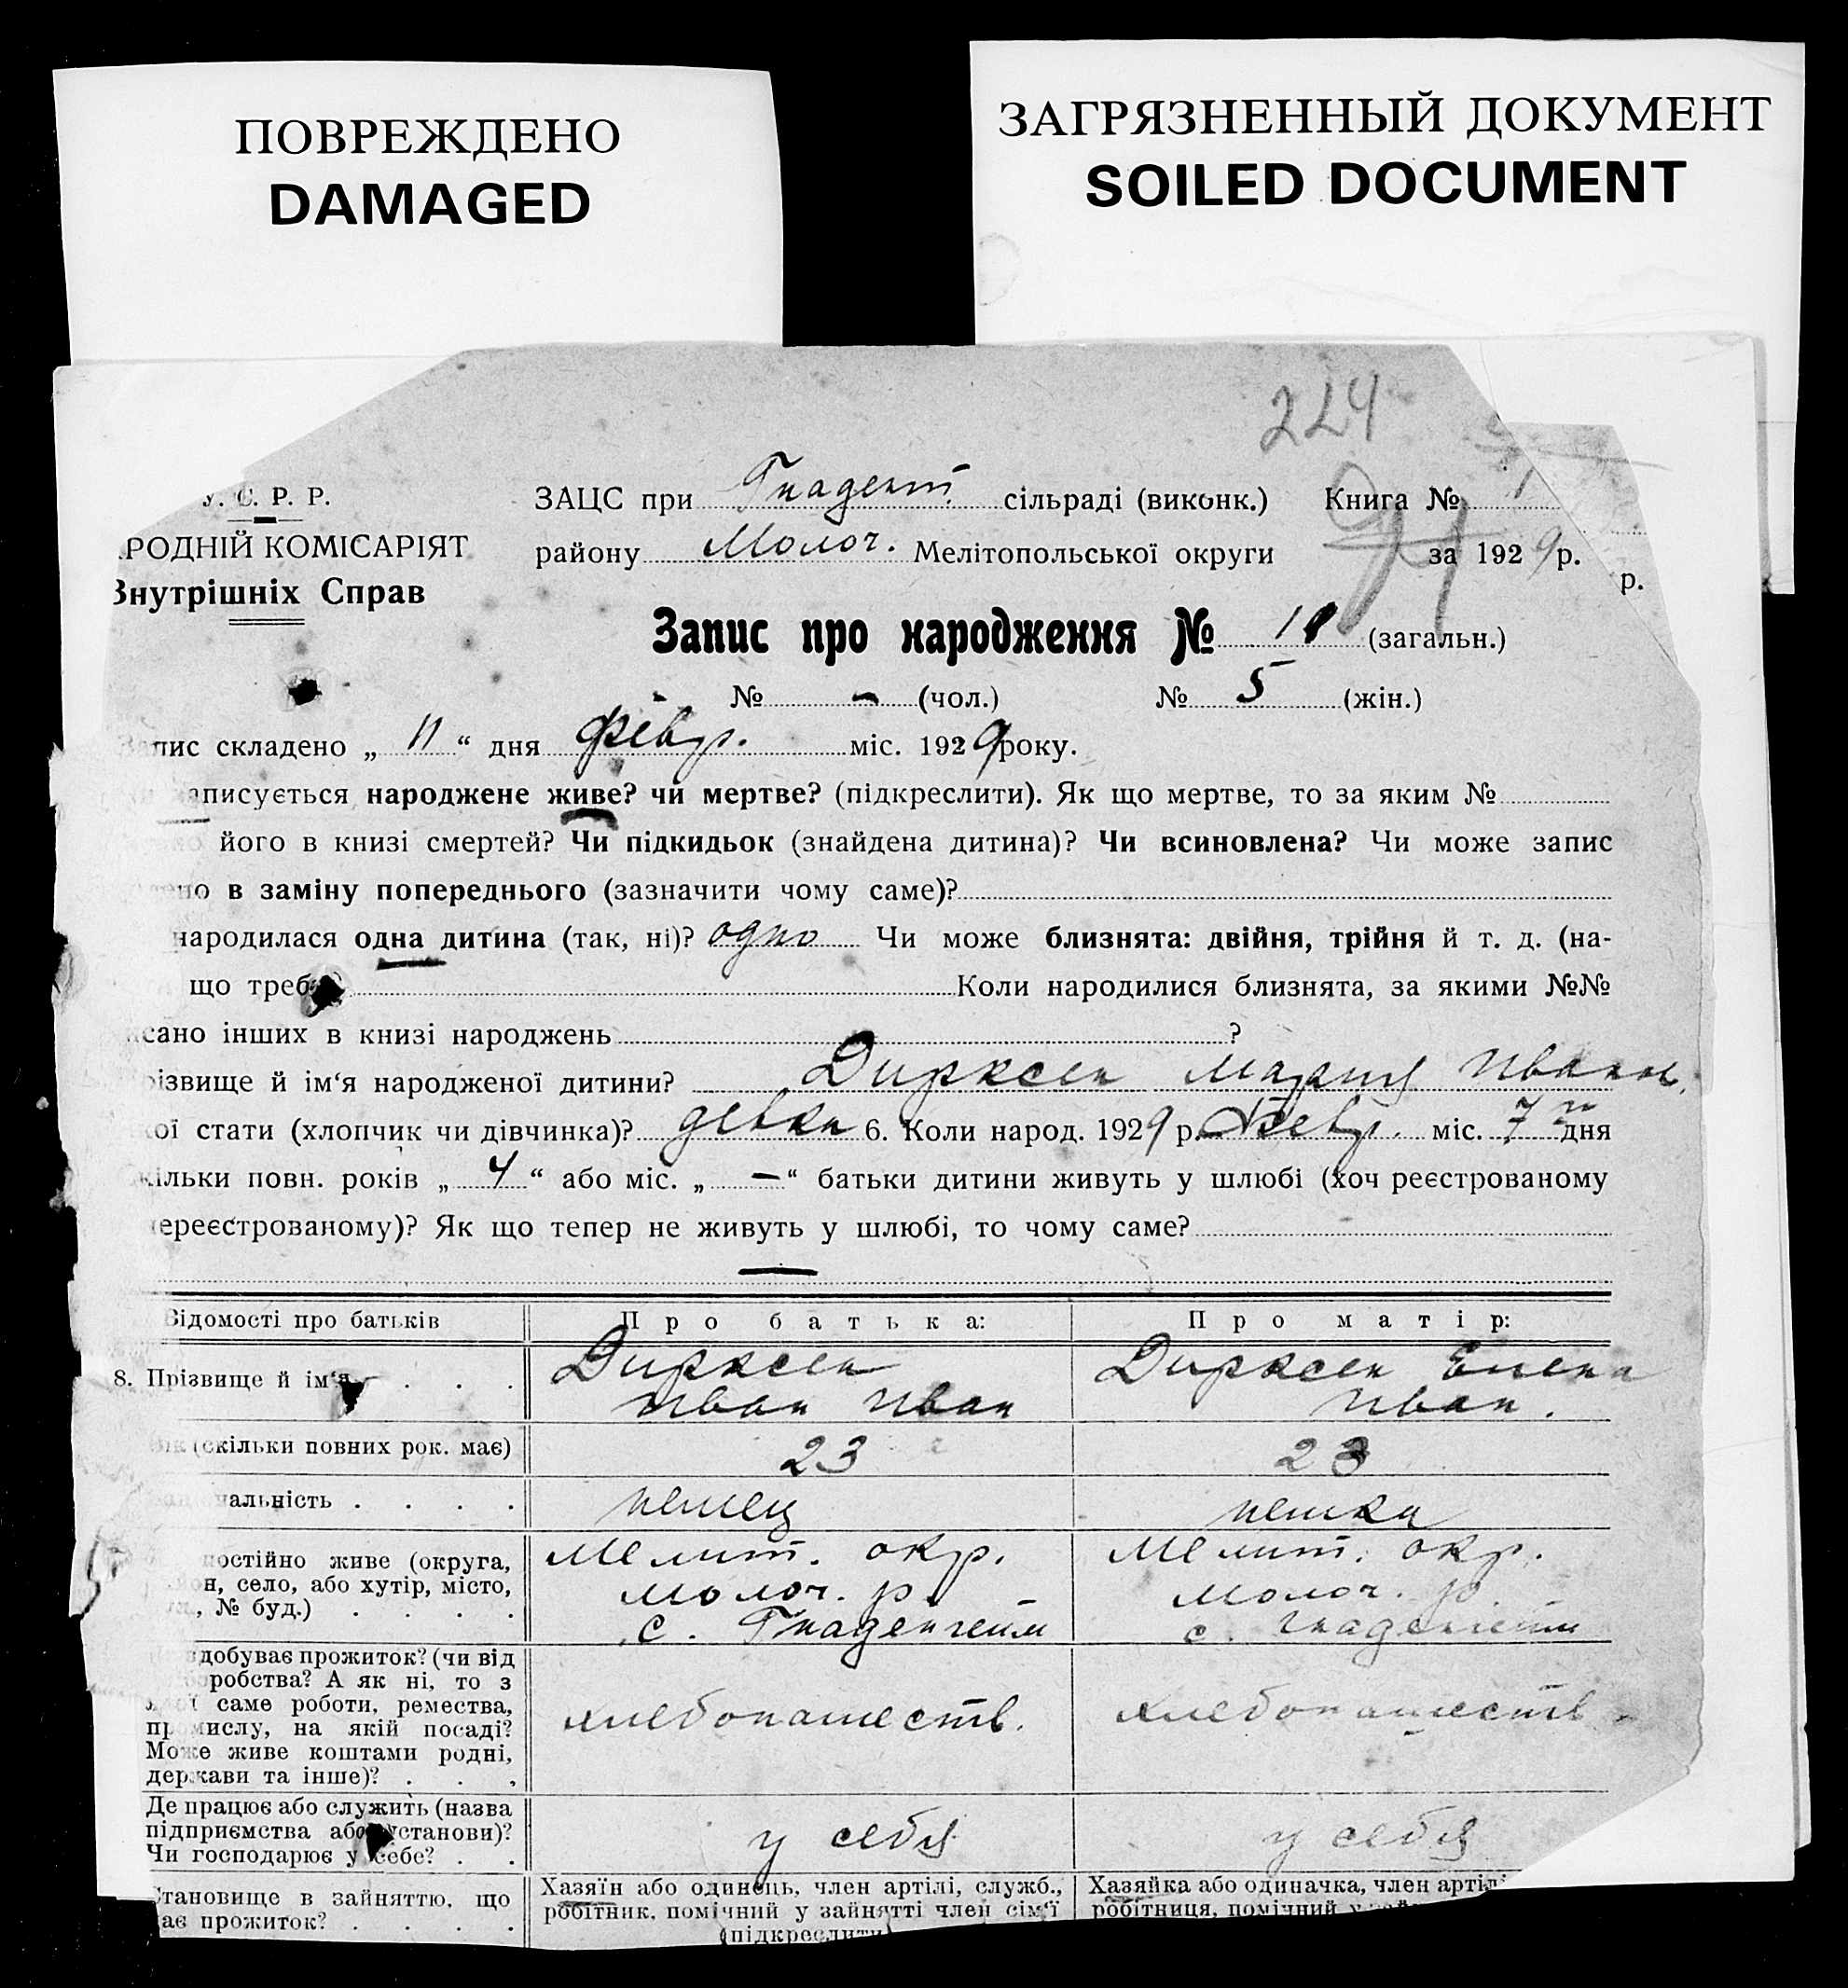 ПОВРЕЖДЕНО
DAMAGED
ЗАГРЯЗНЕННЫЙ ДОКУМЕНТ
SOILED DOCUMENT
224
У. С. Р. Р.
РОДНІЙ КОМІСАРІЯТ
Внутрішніх Справ
ЗАЦС при Гнадент. сільраді (виконк.) Книга №
району Молоч. Мелітопольської округи за 1929 р.
р.
Запис про народження № (загальн.)
№ — (чол.) № 5 (жін.)
Запис складено „ 11 “ дня февр. міс. 1929 року.
записується народжене живе? чи мертве? (підкреслити). Як що мертве, то за яким №
його в книзі смертей? Чи підкидьок (знайдена дитина)? Чи всиновлена? Чи може запис
но в заміну попереднього (зазначити чому саме)?
народилася одна дитина (так, ні)? одно Чи може близнята: двійня, трійня й т. д. (на-
що треб Коли народилися близнята, за якими №№
сано інших в книзі народжень ?
різвище й ім‘я народженої дитини? Дирксен Мария Иванов.
кої стати (хлопчик чи дівчинка)? девка 6. Коли народ. 1929 р. Февр. міс. 7 дня
кільки повн. років „ 4 “ або міс. „ — “ батьки дитини живуть у шлюбі (хоч реєстрованому
ереєстрованому)? Як що тепер не живуть у шлюбі, то чому саме?
—
Відомості про батьків Про батька: Про матір:
8. Прізвище й ім‘я . . . Дирксен Иван Иван Дирксен Елена Иван.
ік (скільки повних рок. має) 23 23
альність . . . . немец немка
постійно живе (округа,
н, село, або хутір, місто,
, № буд.) . . . .
Мелит. окр. Мелит. окр.
Молоч. р. Молоч. р.
с. Гнаденгейм с. Гнаденгейм
здобуває прожиток? (чи від
робства? А як ні, то з
саме роботи, ремества,
промислу, на якій посаді?
Може живе коштами родні,
держави та інше)? . . .
хлебопашеств. хлебопашеств.
Де працює або служить (назва
підприємства або установи)?
Чи господарює у себе? . .
у себя у себя
Становище в зайняттю, що
ає прожиток? . . . .
Хазяїн або одинець, член артілі, служб.,
робітник, помічний у зайнятті член сім‘ї
(підкреслити)
Хазяйка або одиначка, член артілі
робітниця, помічний у